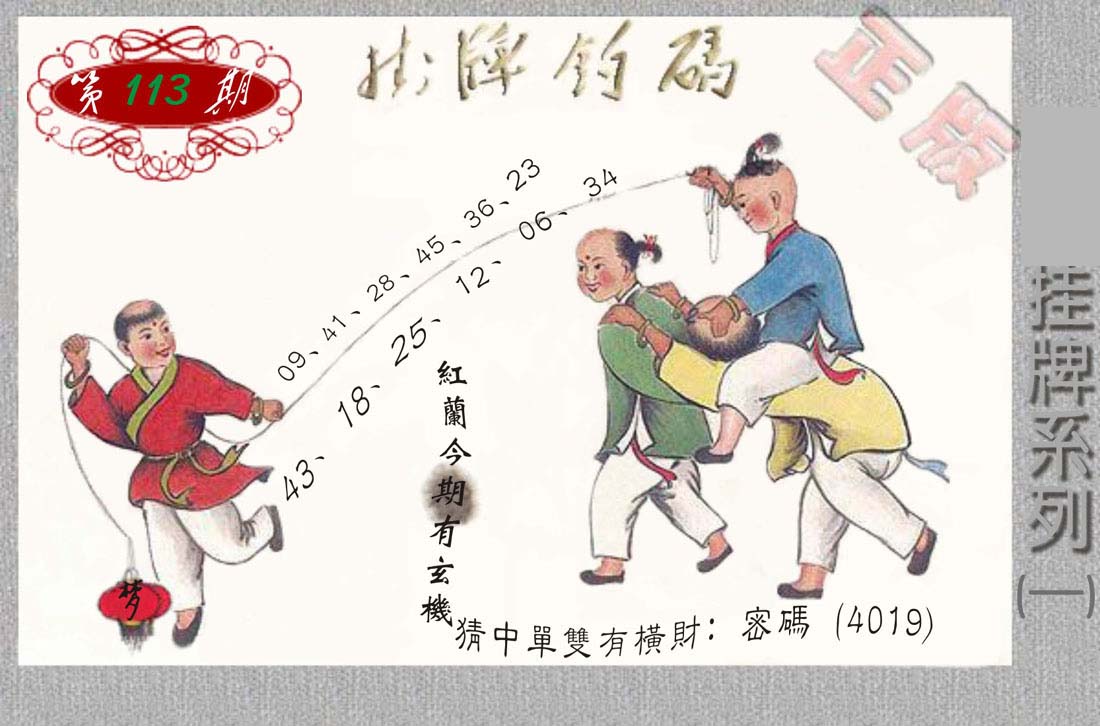 第 113 期
掛牌釣碼
正版
09、41、28、45、36、23
43、18、25、12、06、34
紅蘭今期有玄機
猜中單雙有橫財：密碼 (4019)
梦
挂牌系列(一)